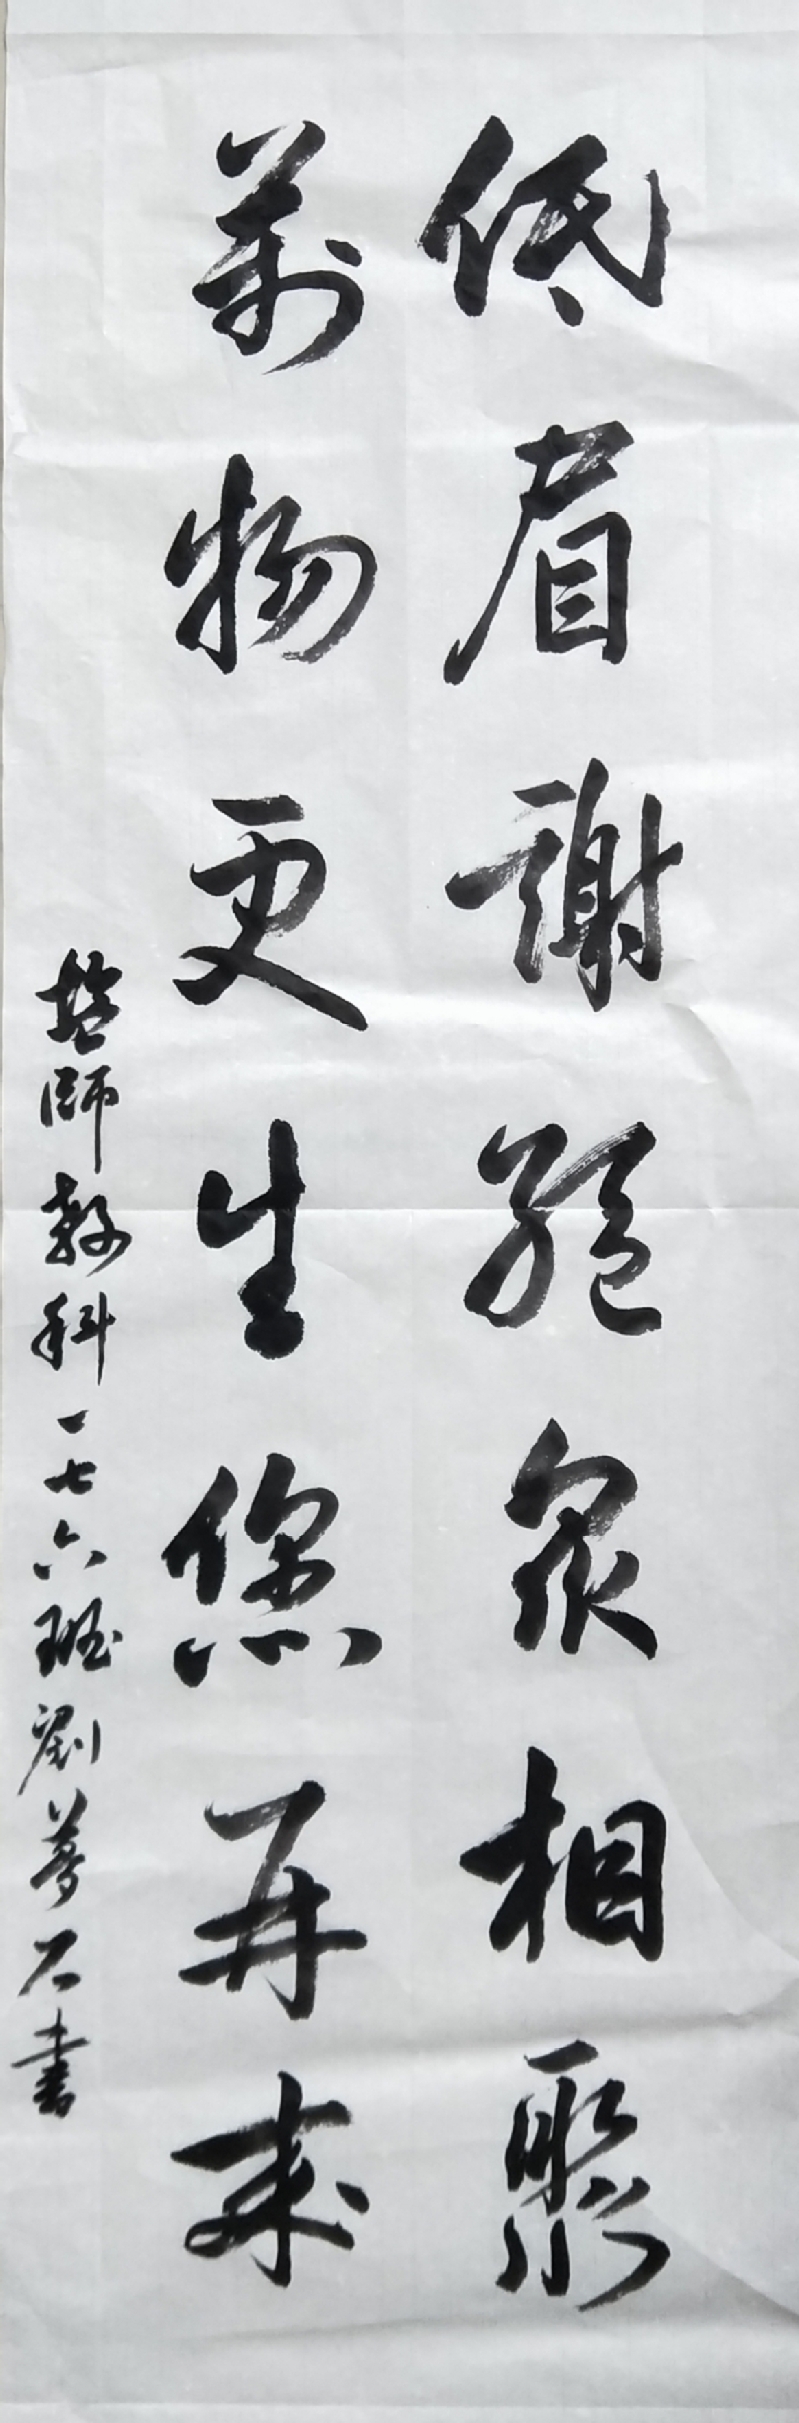 低眉謝絕眾相聚
萬物更生您再來
鹽師教科一七六班劉夢石書